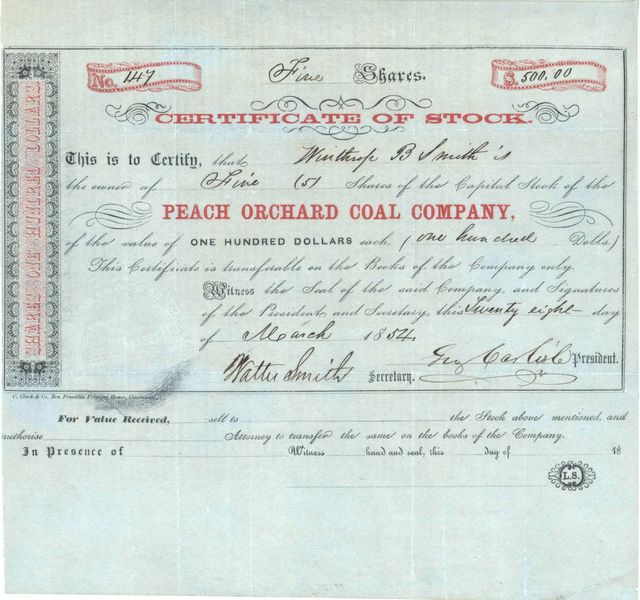 No. 147 Five Shares. $. 500.00
CERTIFICATE OF STOCK.
This is to Certify, that Winthrop B Smith is
the owner of Five (5) Shares of the Capital Stock of the
PEACH ORCHARD COAL COMPANY,
of the value of ONE HUNDRED DOLLARS each, (one hundred Dolls.)
This Certificate is transferable on the Books of the Company only.
Witness the Seal of the said Company, and Signatures
of the President and Secretary, this Twenty eight day
of March 1854
Watter Smith Secretary. Geo Carlisle President.
SHARES ONE HUNDRED DOLLARS
C. Clark & Co. Ben Franklin Printing House, Cincinnati.
For Value Received, sell to the Stock above mentioned, and
authorise Attorney to transfer the same on the books of the Company.
In Presence of Witness hand and seal, this day of 18
L.S.